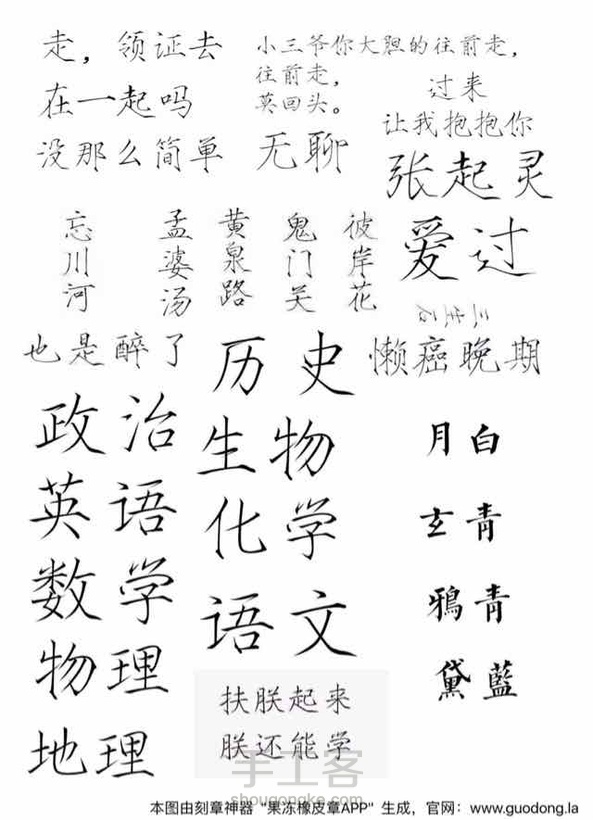 走，领证去
在一起吗
没那么简单
小三爷你大胆的往前走，
往前走，
莫回头。
无聊
过来
让我抱抱你
张起灵
爱过
忘川河
孟婆汤
黄泉路
鬼门关
彼岸花
三生石
也是醉了
历史
懒癌晚期
政治
生物
英语
化学
数学
语文
物理
地理
月白
玄青
鴉青
黛藍
扶朕起来
朕还能学
手工客
shougongke.com
本图由刻章神器 "果冻橡皮章APP" 生成，官网：www.guodong.la